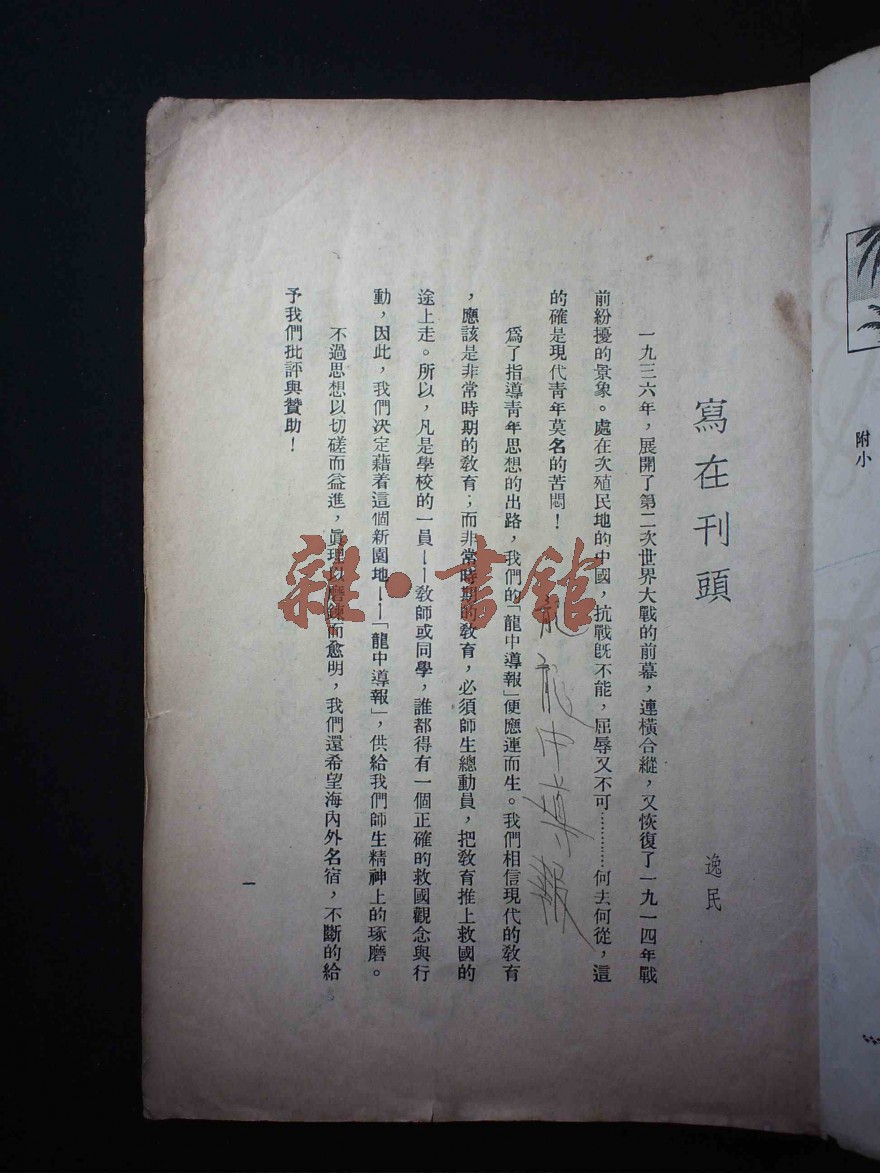 寫在刊頭
逸民
一九三六年，展開了第二次世界大戰的前幕，連橫合縱，又恢復了一九一四年戰
前紛擾的景象。處在次殖民地的中國，抗戰既不能，屈辱又不可…………何去何從，這
的確是現代青年莫名的苦悶！
龍龍中導報
爲了指導青年思想的出路，我們的「龍中導報」便應運而生。我們相信現代的教育
，應該是非常時期的教育；而非常時期的教育，必須師生總動員，把教育推上救國的
途上走。所以，凡是學校的一員——教師或同學，誰都得有一個正確的救國觀念與行
動，因此，我們決定藉着這個新園地——「龍中導報」，供給我們師生精神上的琢磨。
不過思想以切磋而益進，眞理以磨鍊而愈明，我們還希望海內外名宿，不斷的給
予我們批評與贊助！
一
附小
雜·書館